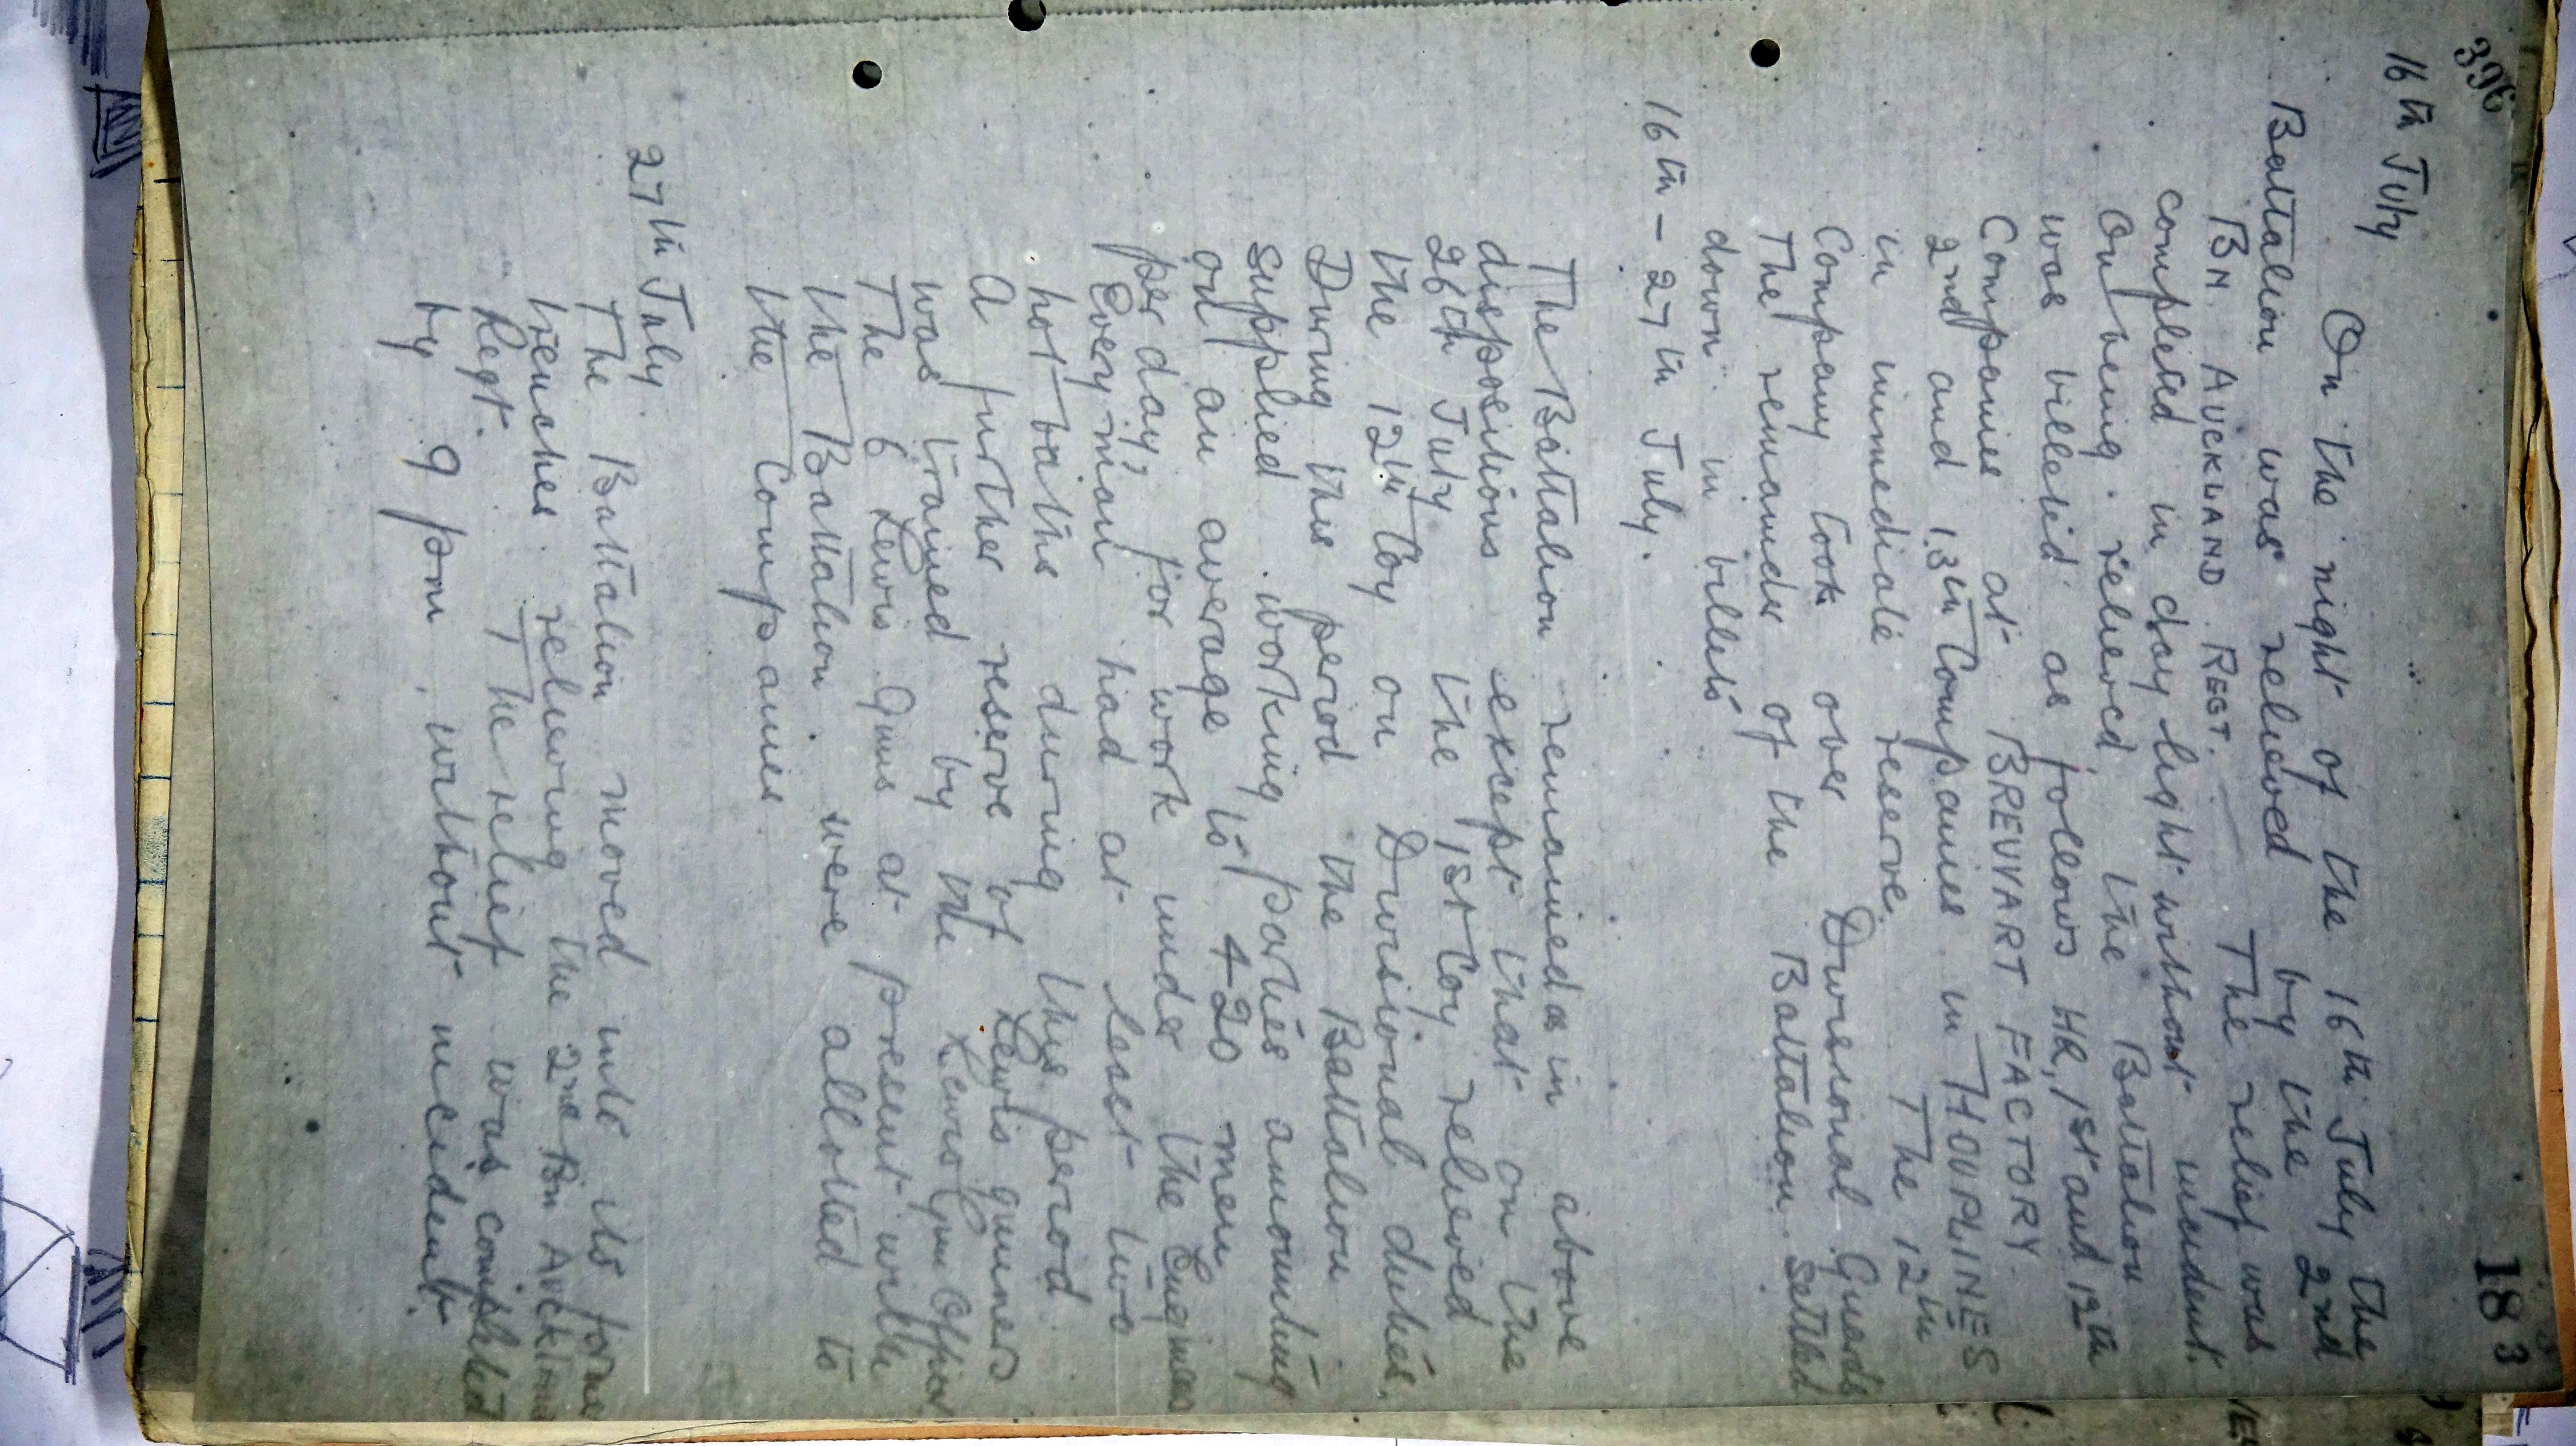 396
18
3
16th July
On the night of the 16th July the
Battalion was relieved by the 2nd
BN. AUCKLAND REGT. The relief was
completed in day light without incident.
On being relieved the Battalion
was billeted as follows HQ, 1st and 12th
Companies at BREUVART FACTORY.
2nd and 13th Companies in HOUPLINES
in immediate reserve. The 12th
Company took over Divisional Guards
The remainder of the Battalion settled
down in billets
16th – 27th July.
The Battalion remained as in above
dispositions except that on the
26th July the 1st Coy relieved
the 12th Coy on Divisional duties.
During this period the Battalion
supplied working parties amounting
on an average to 420 men
per day, for work under the Engineers
Every man had at least two
hot baths during this period
A further reserve of Lewis gunners
was trained by the Lewis Gun Officer
The 6 Lewis Guns at present with
the Battalion were allotted to
the Companies
27th July.
The Battalion moved into its
trenches relieving the 2nd Bn
Regt. The relief was completed
by 9 pm without incident.